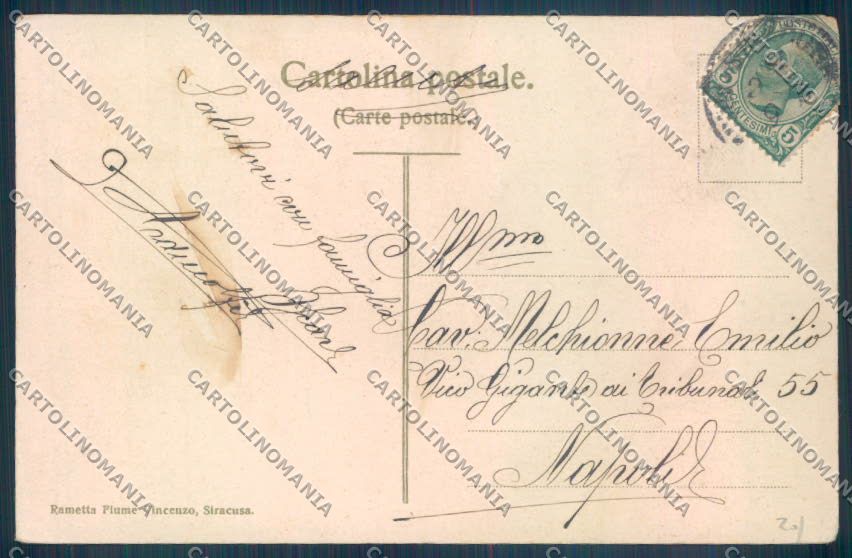 Cartolina postale.
(Carte postale.)
Saluti con famiglia
Ill.mo
Cav: Melchionne Emilio
Vico Gigante ai Tribunali 55
Napoli
Rametta Fiume Vincenzo, Siracusa.
POSTE
CENTESIMI 5
20/
CARTOLINOMANIA